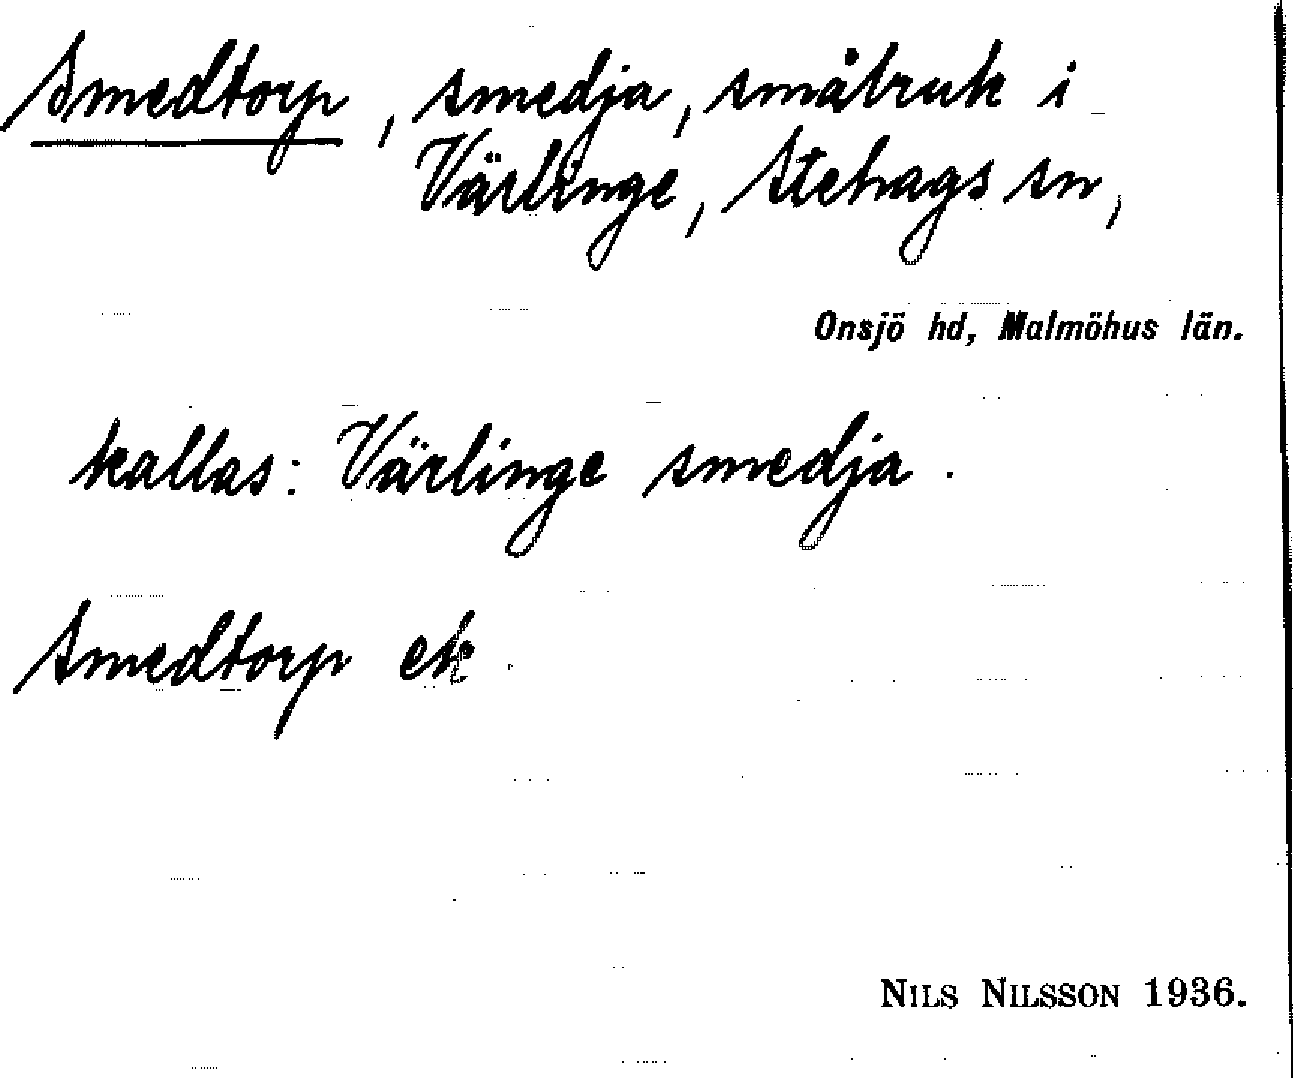 Smedtorp, smedja, småbruk i
Värlinge, Stehags sn,
Onsjö hd, Malmöhus län.
kallas: Värlinge smedja.
Smedtorp ek.
NILS NILSSON 1936.